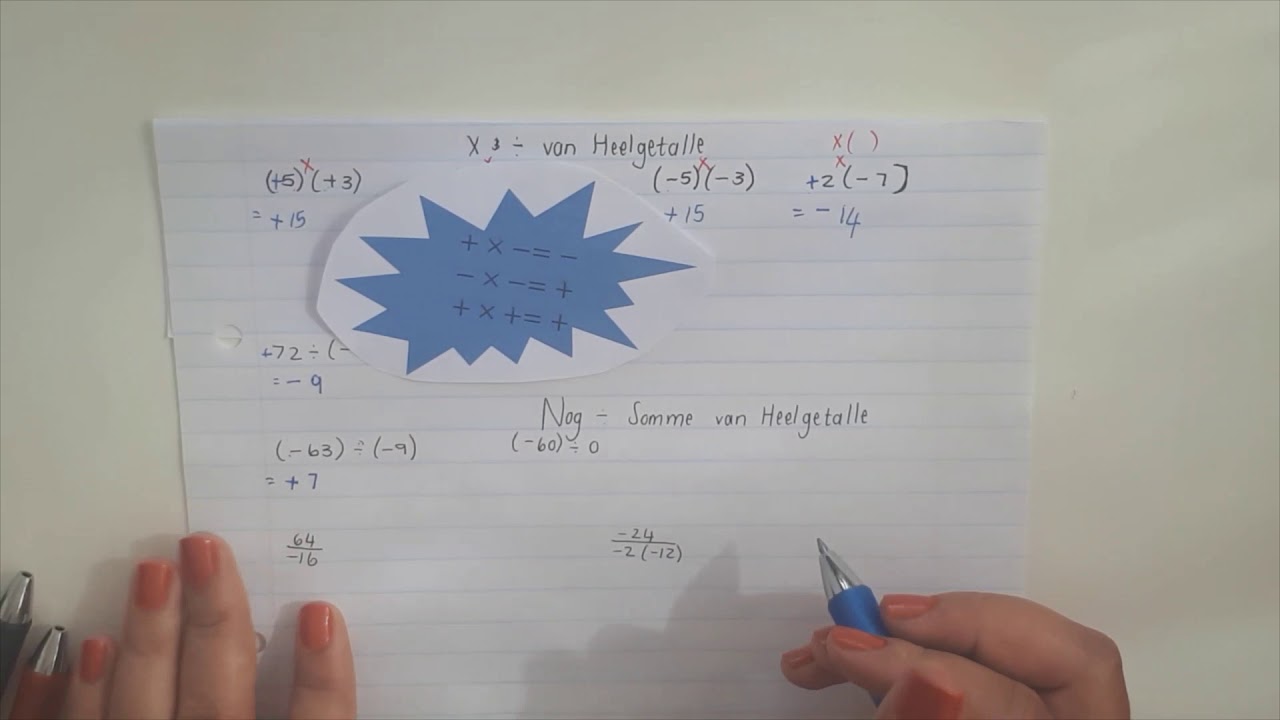 X & ÷ van Heelgetalle
x( )
(+5)x(+3)
= +15
(-5)x(-3)
+15
x
+2(-7]
= -14
+ × -= -
- × -= +
+ × += +
+72 ÷ (-
= - 9
Nog ÷ Somme van Heelgetalle
(-63) ÷ (-9)
= + 7
(-60) ÷ 0
64
-16
-24
-2(-12)